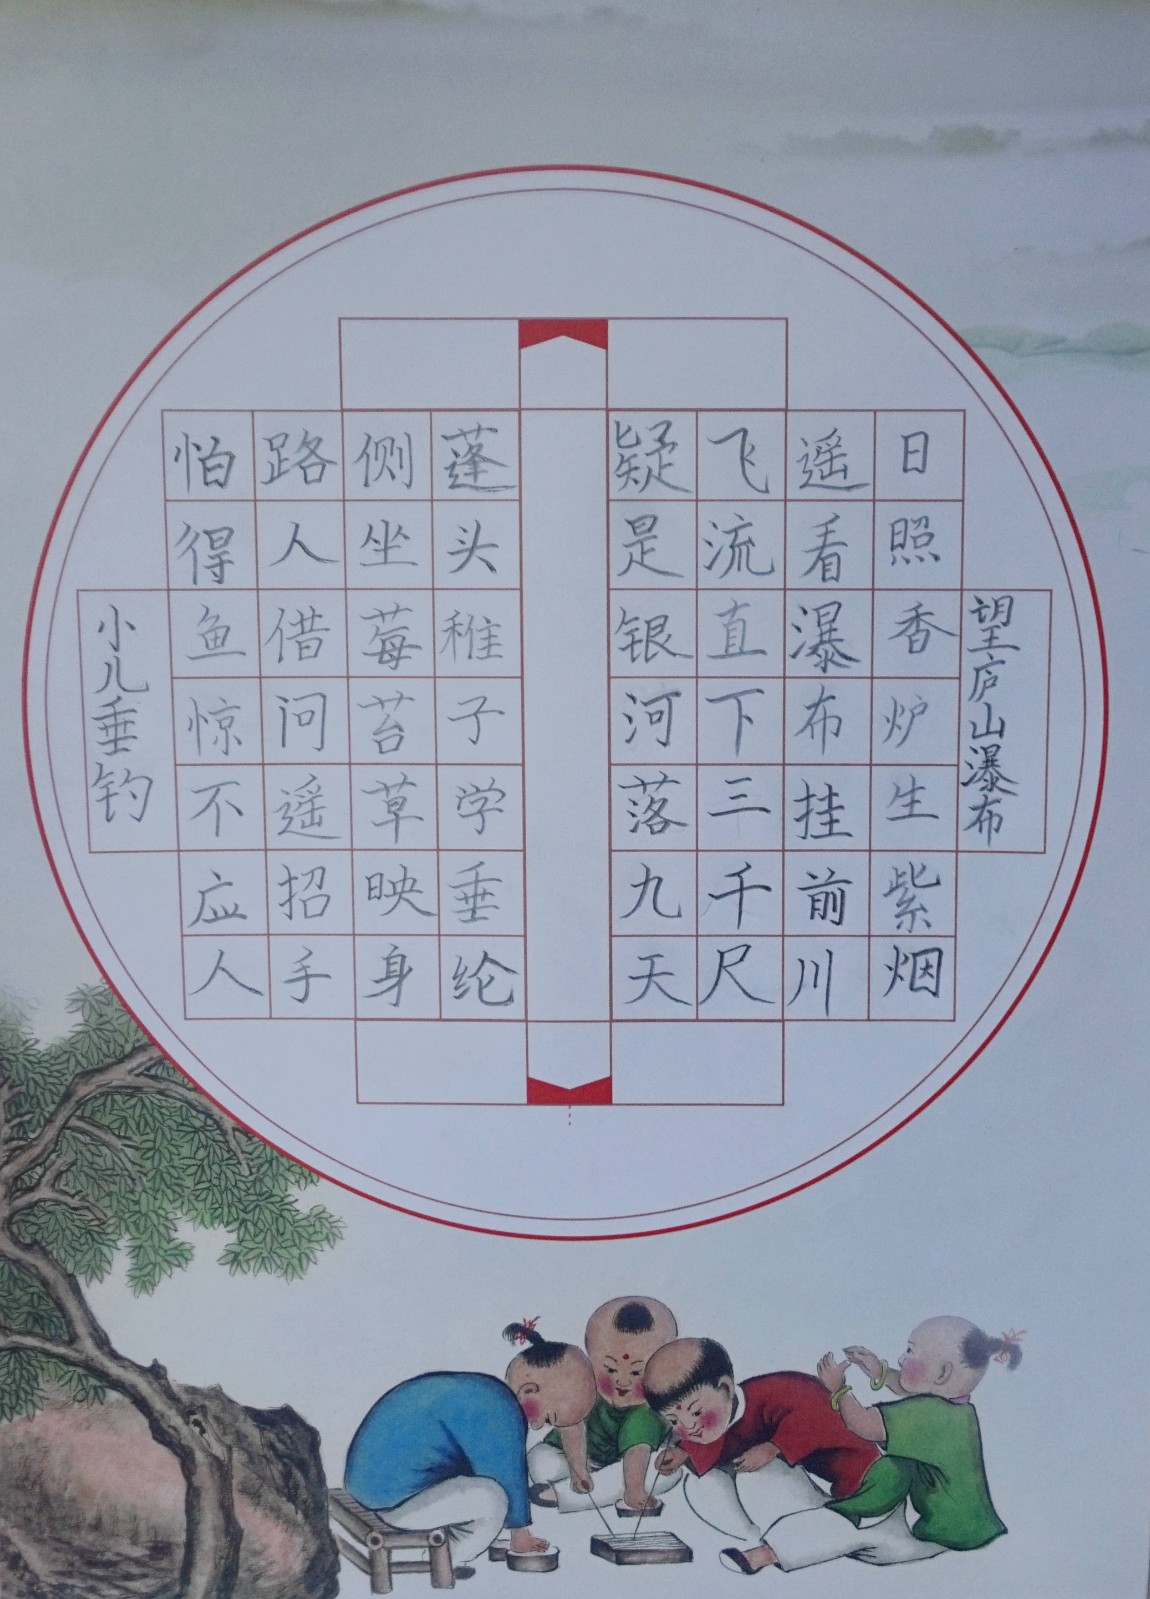 望庐山瀑布
日照香炉生紫烟
遥看瀑布挂前川
飞流直下三千尺
疑是银河落九天
蓬头稚子学垂纶
侧坐莓苔草映身
路人借问遥招手
怕得鱼惊不应人
小儿垂钓